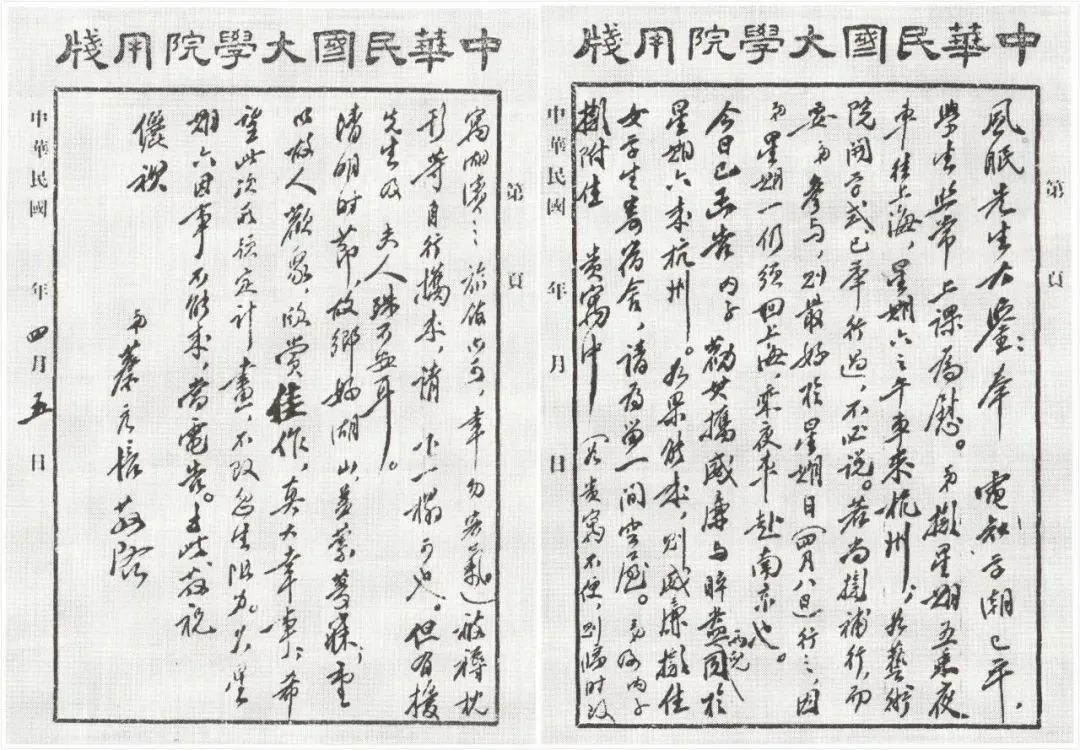 中華民國大學院用牋
第 頁
風眠先生大鑒:奉 電知學潮已平,
學生照常上課爲慰。弟擬星期五乘夜
車往上海,星期六之午車來杭州;如藝術
院開學式已舉行過,不必說。若尚擬補行,而
要弟參與,則最好於星期日(四月八日)行之,因
弟星期一仍須回上海,乘夜車赴南京也。
今日已函告 內子勸其攜威廉與睟盎兩兒同於
星期六來杭州。如果能來,則威廉擬住
女學生寄宿舍,請爲留一間空屋。弟及內子
擬附住 貴寓中(若貴寓不便,則臨時改
中華民國 年 月 日
中華民國大學院用牋
第 頁
寓湖濱之旅館亦可,幸勿客氣)被褥枕
等自行攜來,請下一榻可也。但有擾
先生及 夫人殊不安耳。
清明時節,故鄉好湖山,縈夢寐;重
以故人歡聚,欣賞佳作,真大幸事;希
望此次所預定計畫,不致發生阻力。如星
期六因事不能來,當電告。專此敬祝
儷祺
弟蔡元培敬啓
中華民國 年四月五日